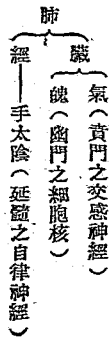 肺
臟
氣（賁門之交感神經）
魄（幽門之細胞核）
經——手太陰（延髓之自律神經）